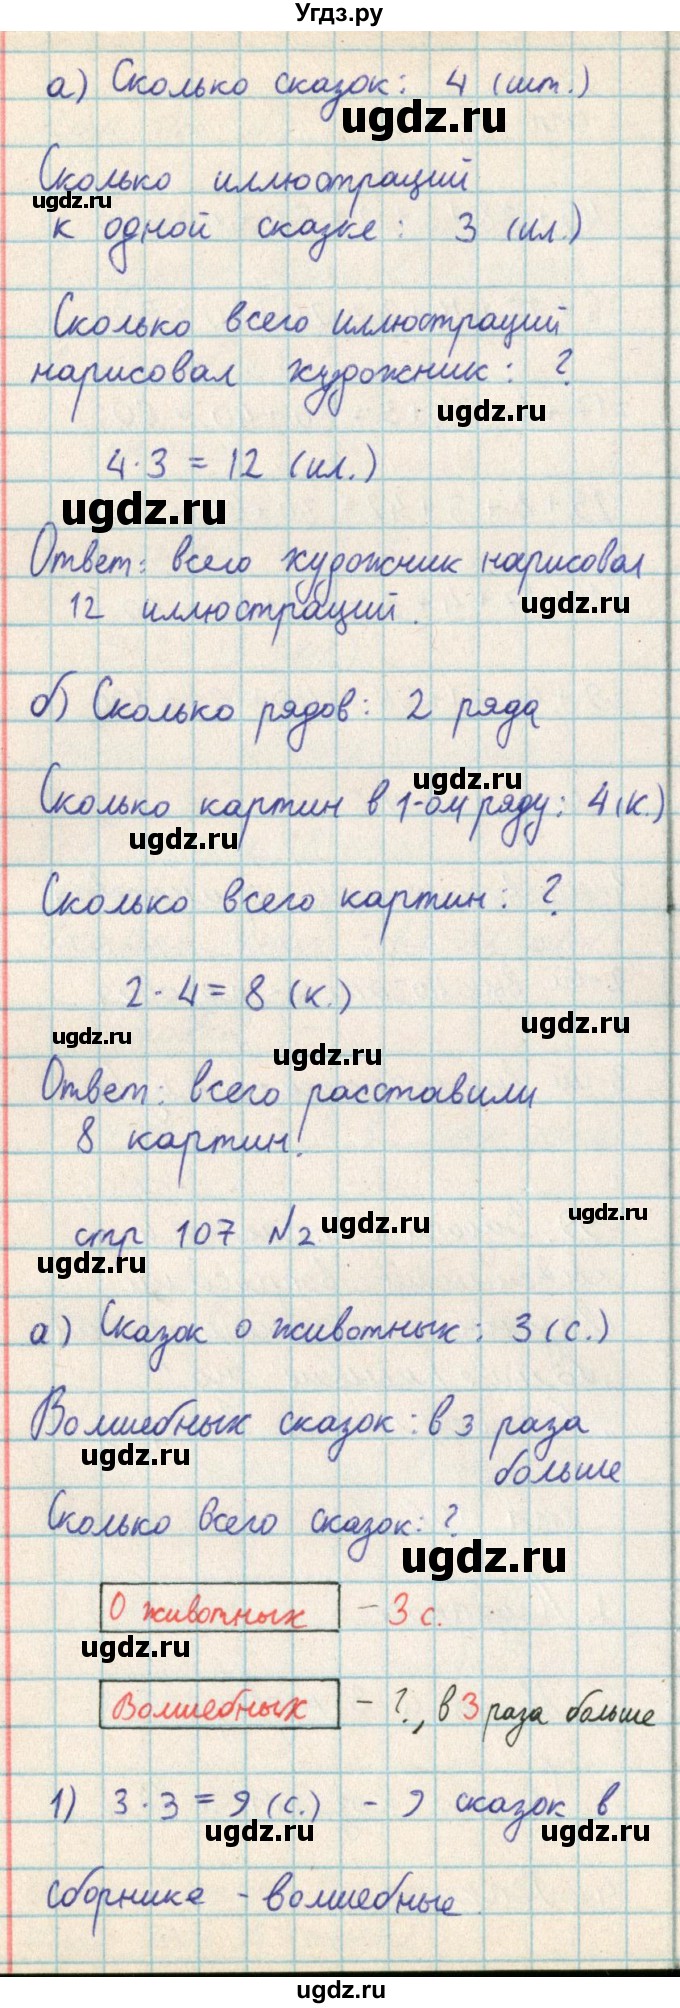 Угдз.ру
а) Сколько сказок: 4 (шт.)
ugdz.ru
Сколько иллюстраций
ugdz.ru
к одной сказке: 3 (ил.)
Сколько всего иллюстраций
нарисовал художник: ?
ugdz.ru
4·3 = 12 (ил.)
ugdz.ru
Ответ: всего художник нарисовал
12 иллюстраций.
ugdz.ru
б) Сколько рядов: 2 ряда
ugdz.ru
Сколько картин в 1-ом ряду: 4 (к.)
ugdz.ru
Сколько всего картин: ?
2·4 = 8 (к.)
ugdz.ru
ugdz.ru
ugdz.ru
Ответ: всего расставили
8 картин!
ugdz.ru
стр 107 №2
ugdz.ru
ugdz.ru
а) Сказок о животных: 3 (с.)
Волшебных сказок: в 3 раза
ugdz.ru
больше
Сколько всего сказок: ?
ugdz.ru
О животных – 3 с.
ugdz.ru
Волшебных – ?, в 3 раза больше
1) 3·3 = 9 (с.) – 9 сказок в
ugdz.ru
ugdz.ru
сборнике – волшебные.
ugdz.ru